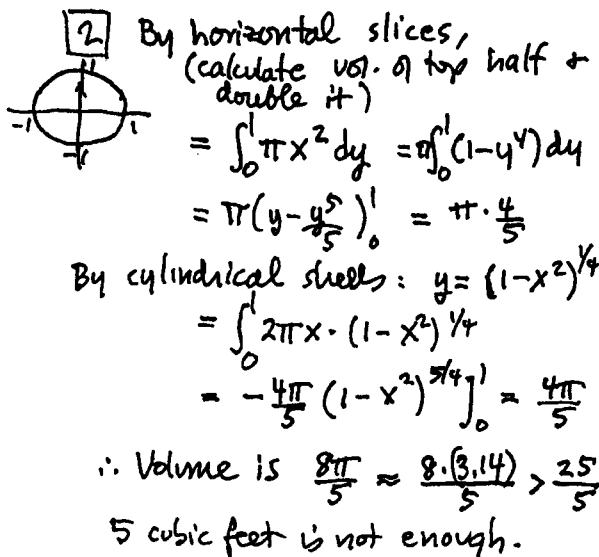 2 By horizontal slices,
(calculate vol. of top half &
double it)
1
-1 1
-1
= ∫₀¹ πx² dy = π∫₀¹ (1-y⁴) dy
= π(y - y⁵/5)₀¹ = π · 4/5
By cylindrical shells: y = (1-x²)^1/4
= ∫₀¹ 2πx · (1-x²)^1/4
= - 4π/5 (1-x²)^5/4]₀¹ = 4π/5
∴ Volume is 8π/5 ≈ 8.(3.14)/5 > 25/5
5 cubic feet is not enough.